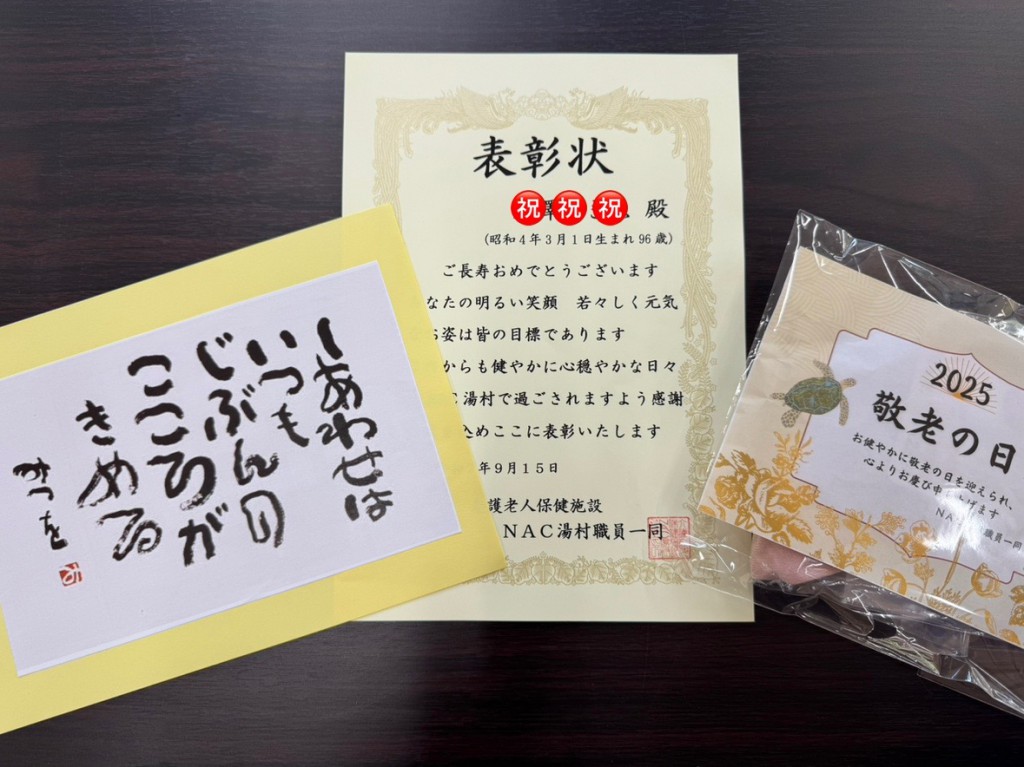 しあわせは
いつも
じぶんの
こころが
きめる
みつを
表彰状
祝祝祝 殿
(昭和4年3月1日生まれ96歳)
ご長寿おめでとうございます
なたの明るい笑顔 若々しく元気
姿は皆の目標であります
からも健やかに心穏やかな日々
C湯村で過ごされますよう感謝
込めここに表彰いたします
年9月15日
護老人保健施設
NAC湯村職員一同
2025
敬老の日
お健やかに敬老の日を迎えられ、
心よりお慶び申し上げます
NA
職員一同